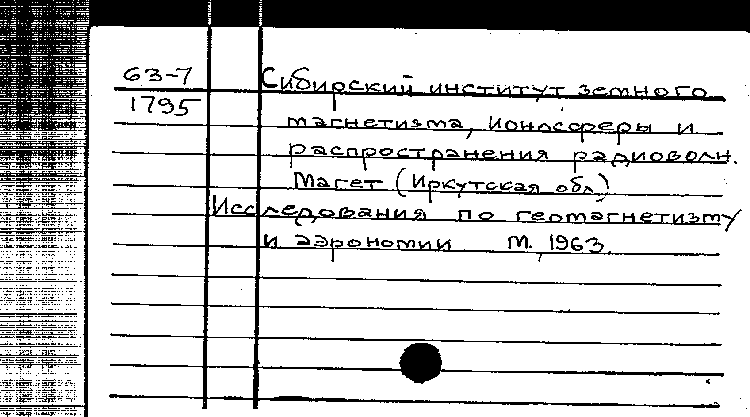 63-7
1795
Сибирский институт земного
магнетизма, ионосферы и
распространения радиоволн.
Магет (Иркутская обл.)
Исследования по геомагнетизму
и аэрономии М. 1963.